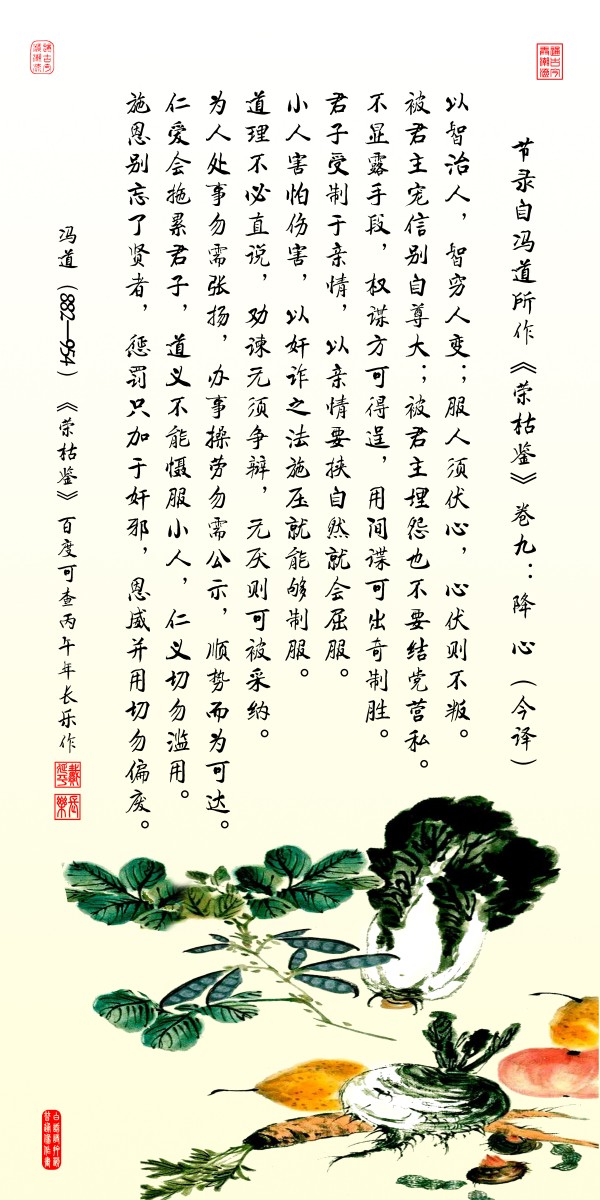 节录自冯道所作《荣枯鉴》卷九：降 心（今译）
以智治人，智穷人变；服人须伏心，心伏则不叛。
被君主宠信别自尊大；被君主埋怨也不要结党营私。
不显露手段，权谋方可得逞，用间谍可出奇制胜。
君子受制于亲情，以亲情要挟自然就会屈服。
小人害怕伤害，以奸诈之法施压就能够制服。
道理不必直说，劝谏无须争辩，无厌则可被采纳。
为人处事勿需张扬，办事操劳勿需公示，顺势而为可达。
仁爱会拖累君子，道义不能慑服小人，仁义切勿滥用。
施恩别忘了贤者，惩罚只加于奸邪，恩威并用切勿偏废。
冯道（882—954）《荣枯鉴》百度可查丙午年长乐作